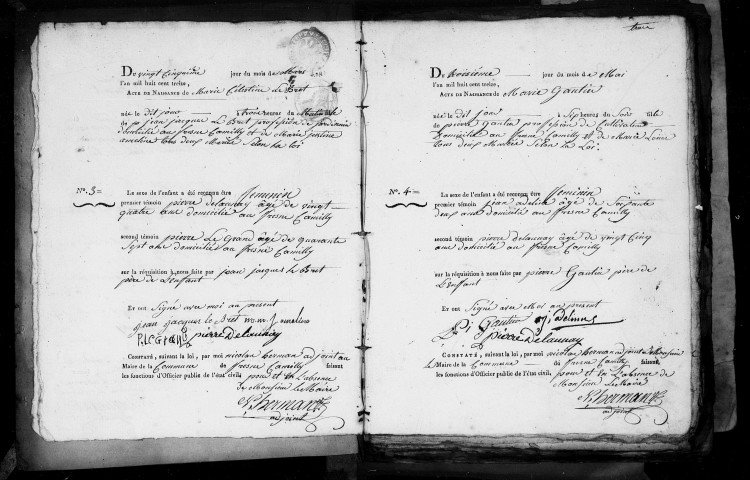 De vingt cinquième jour du mois de Mars
l'an mil huit cent treize,
Acte de Naissance de Marie Celestine Le Bret
née le dit jour à trois heures du Matin fille
de jean jacques Le Bret profession de
domicilié au fresne Camilly et de Marie
tous deux Mariés Selon la loi
N.º 3=
Le sexe de l'enfant a été reconnu être feminin
premier témoin pierre delaunay âgé de vingt
quatre ans domicilié au fresne Camilly
second témoin pierre Le Grand âgé de quarante
Sept ans domicilié au fresne Camilly
sur la réquisition à nous faite par jean jaques le Bret
père de l'enfant
Et ont Signé avec moi au present
jean jacques le Bret
P. LEGRAND pierre Delaunay
Constaté, suivant la loi, par moi nicolas herman adjoint au
Maire de la Commune de fresne Camilly faisant
les fonctions d'Officier public de l'état civil, pour et en L'absence
de Monsieur Le Maire
N. herman
adjoint
De troisième jour du mois de Mai
l'an mil huit cent treize,
Acte de Naissance de Marie Gautier
née le dit jour à Six heures du Soir fille
de pierre Gautier profession de Cultivateur
domicilié au fresne Camilly et de Marie
tous deux Mariés Selon la Loi.
N.º 4=
Le sexe de l'enfant a été reconnu être feminin
premier témoin jean âgé de Soixante
deux ans domicilié au fresne Camilly
second témoin pierre delaunay âgé de vingt Cinq
ans domicilié au fresne Camilly
sur la réquisition à nous faite par pierre Gautier père de
L'enfant
Et ont Signé avec Moi au present
Gautier
pierre Delaunay
Constaté, suivant la loi, par moi nicolas herman adjoint de Monsieur
le Maire de la Commune de fresne Camilly faisant
les fonctions d'Officier public de l'état civil, pour et en L'absence de
Monsieur Le Maire
N. herman
adjoint